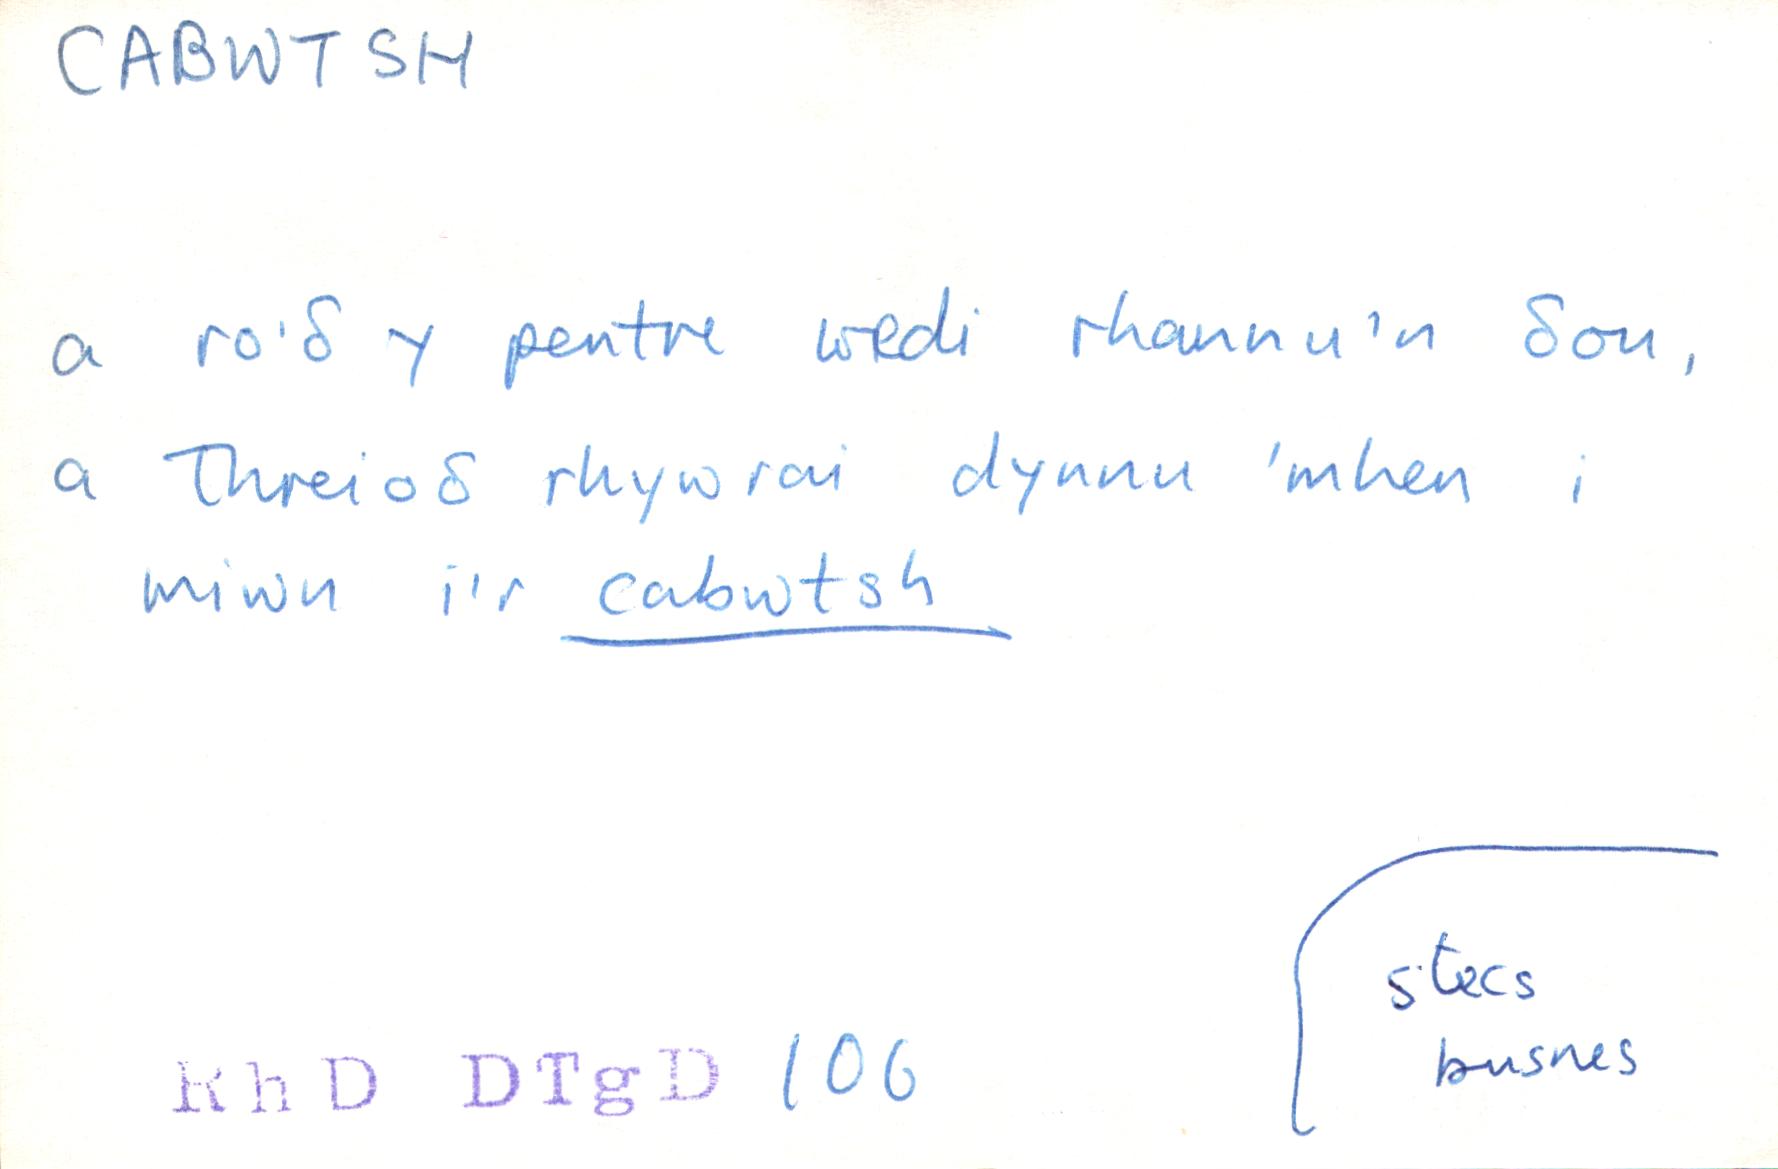 CABWTSH
a ro'δ y pentre wedi rhannu'n δou,
a threioδ rhywrai dynnu 'mhen i
miwn i'r cabwtsh
stecs
busnes
RhD DTgD 106